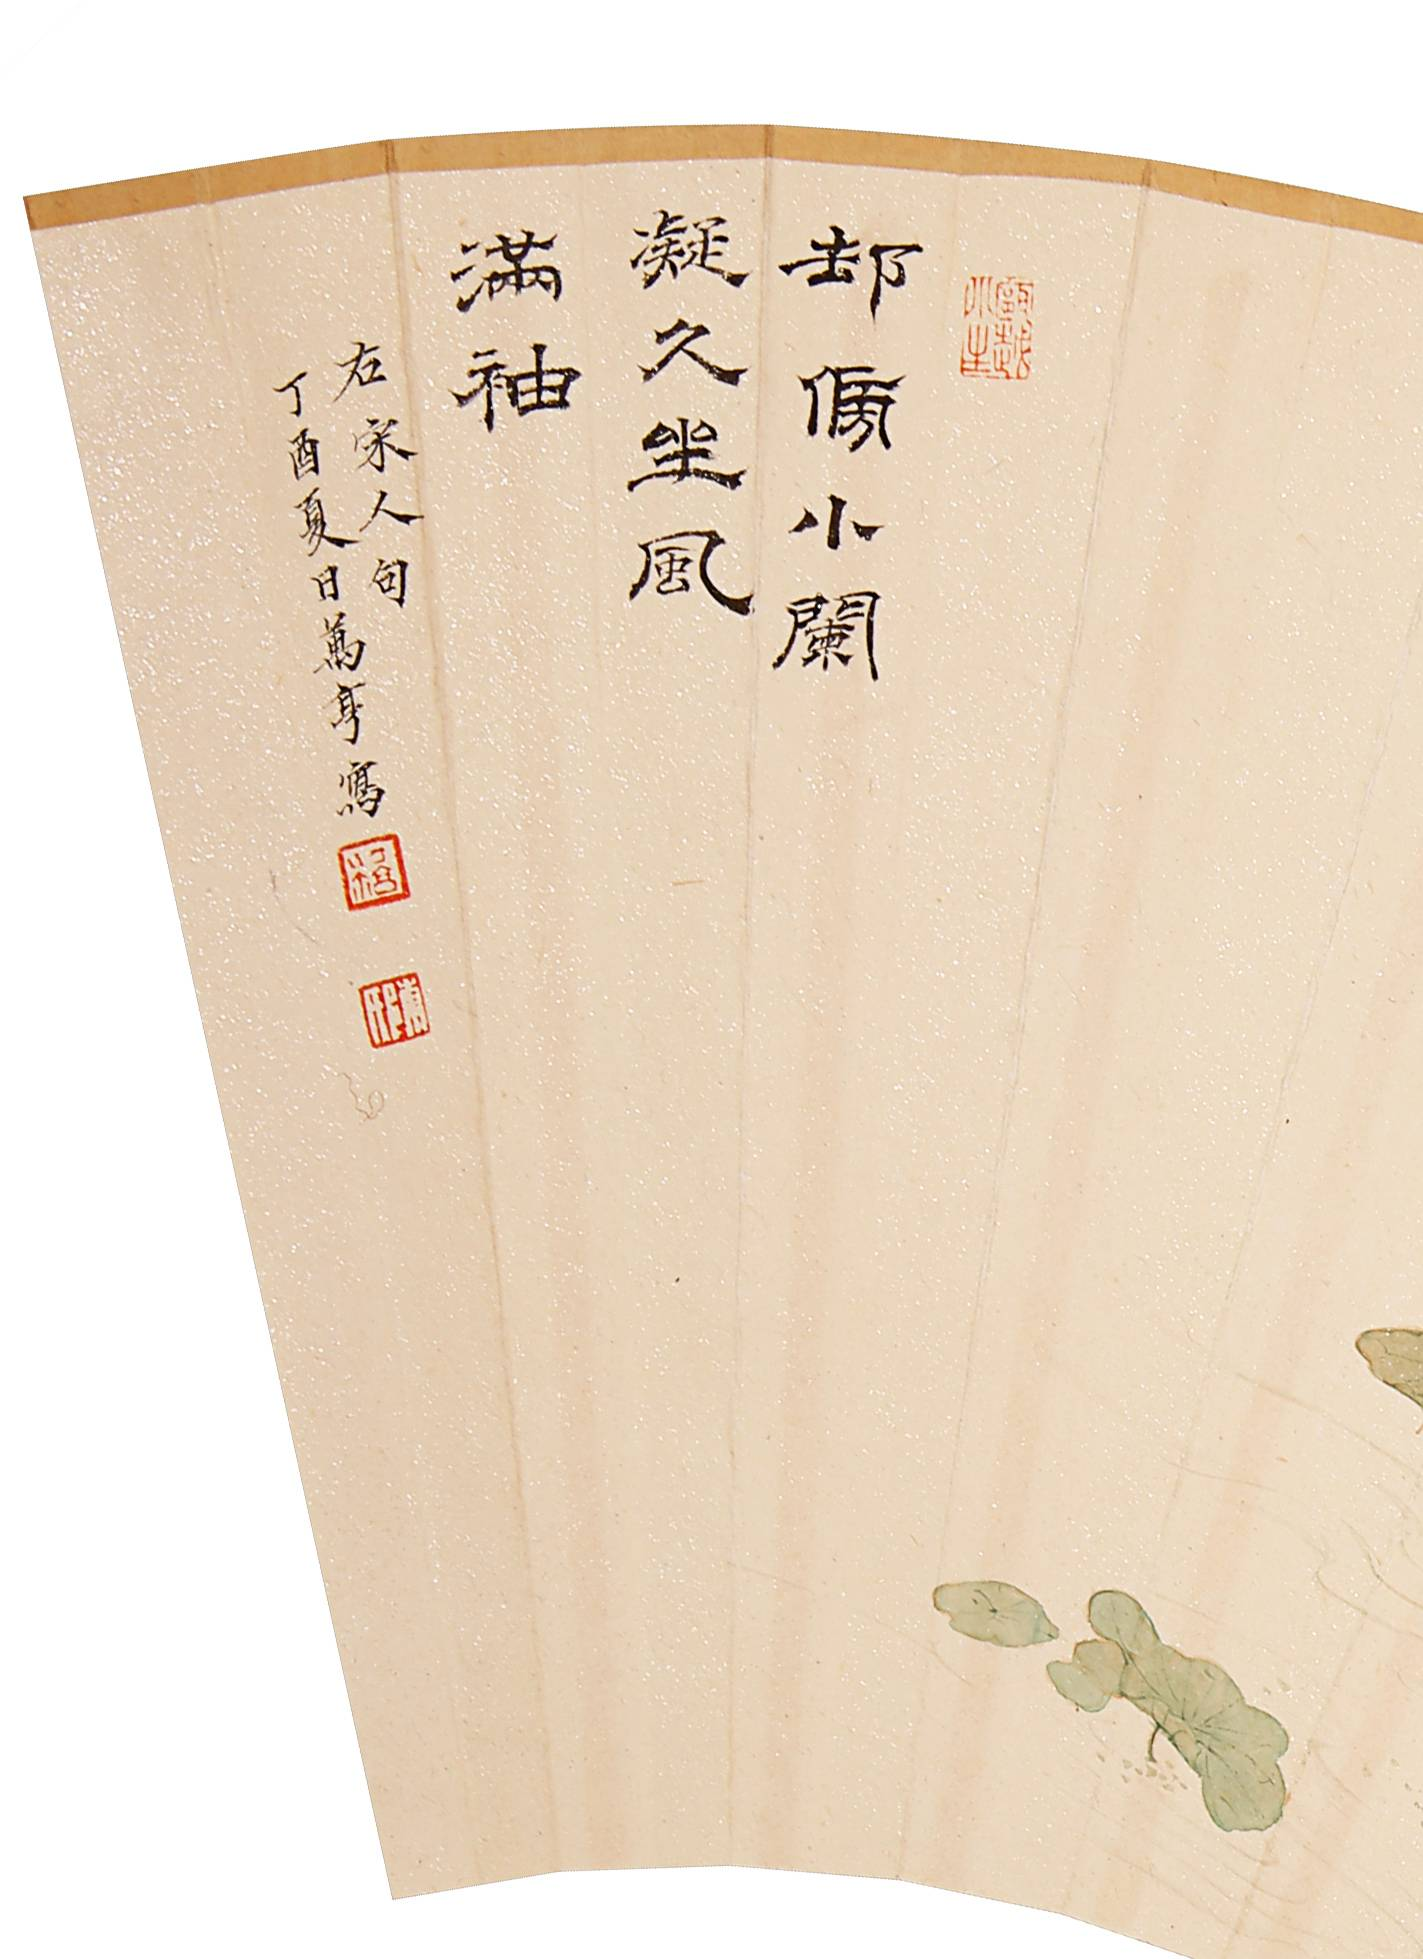 却傍小闌
凝久坐風
滿袖
右宋人句
丁酉夏日萬亭寫